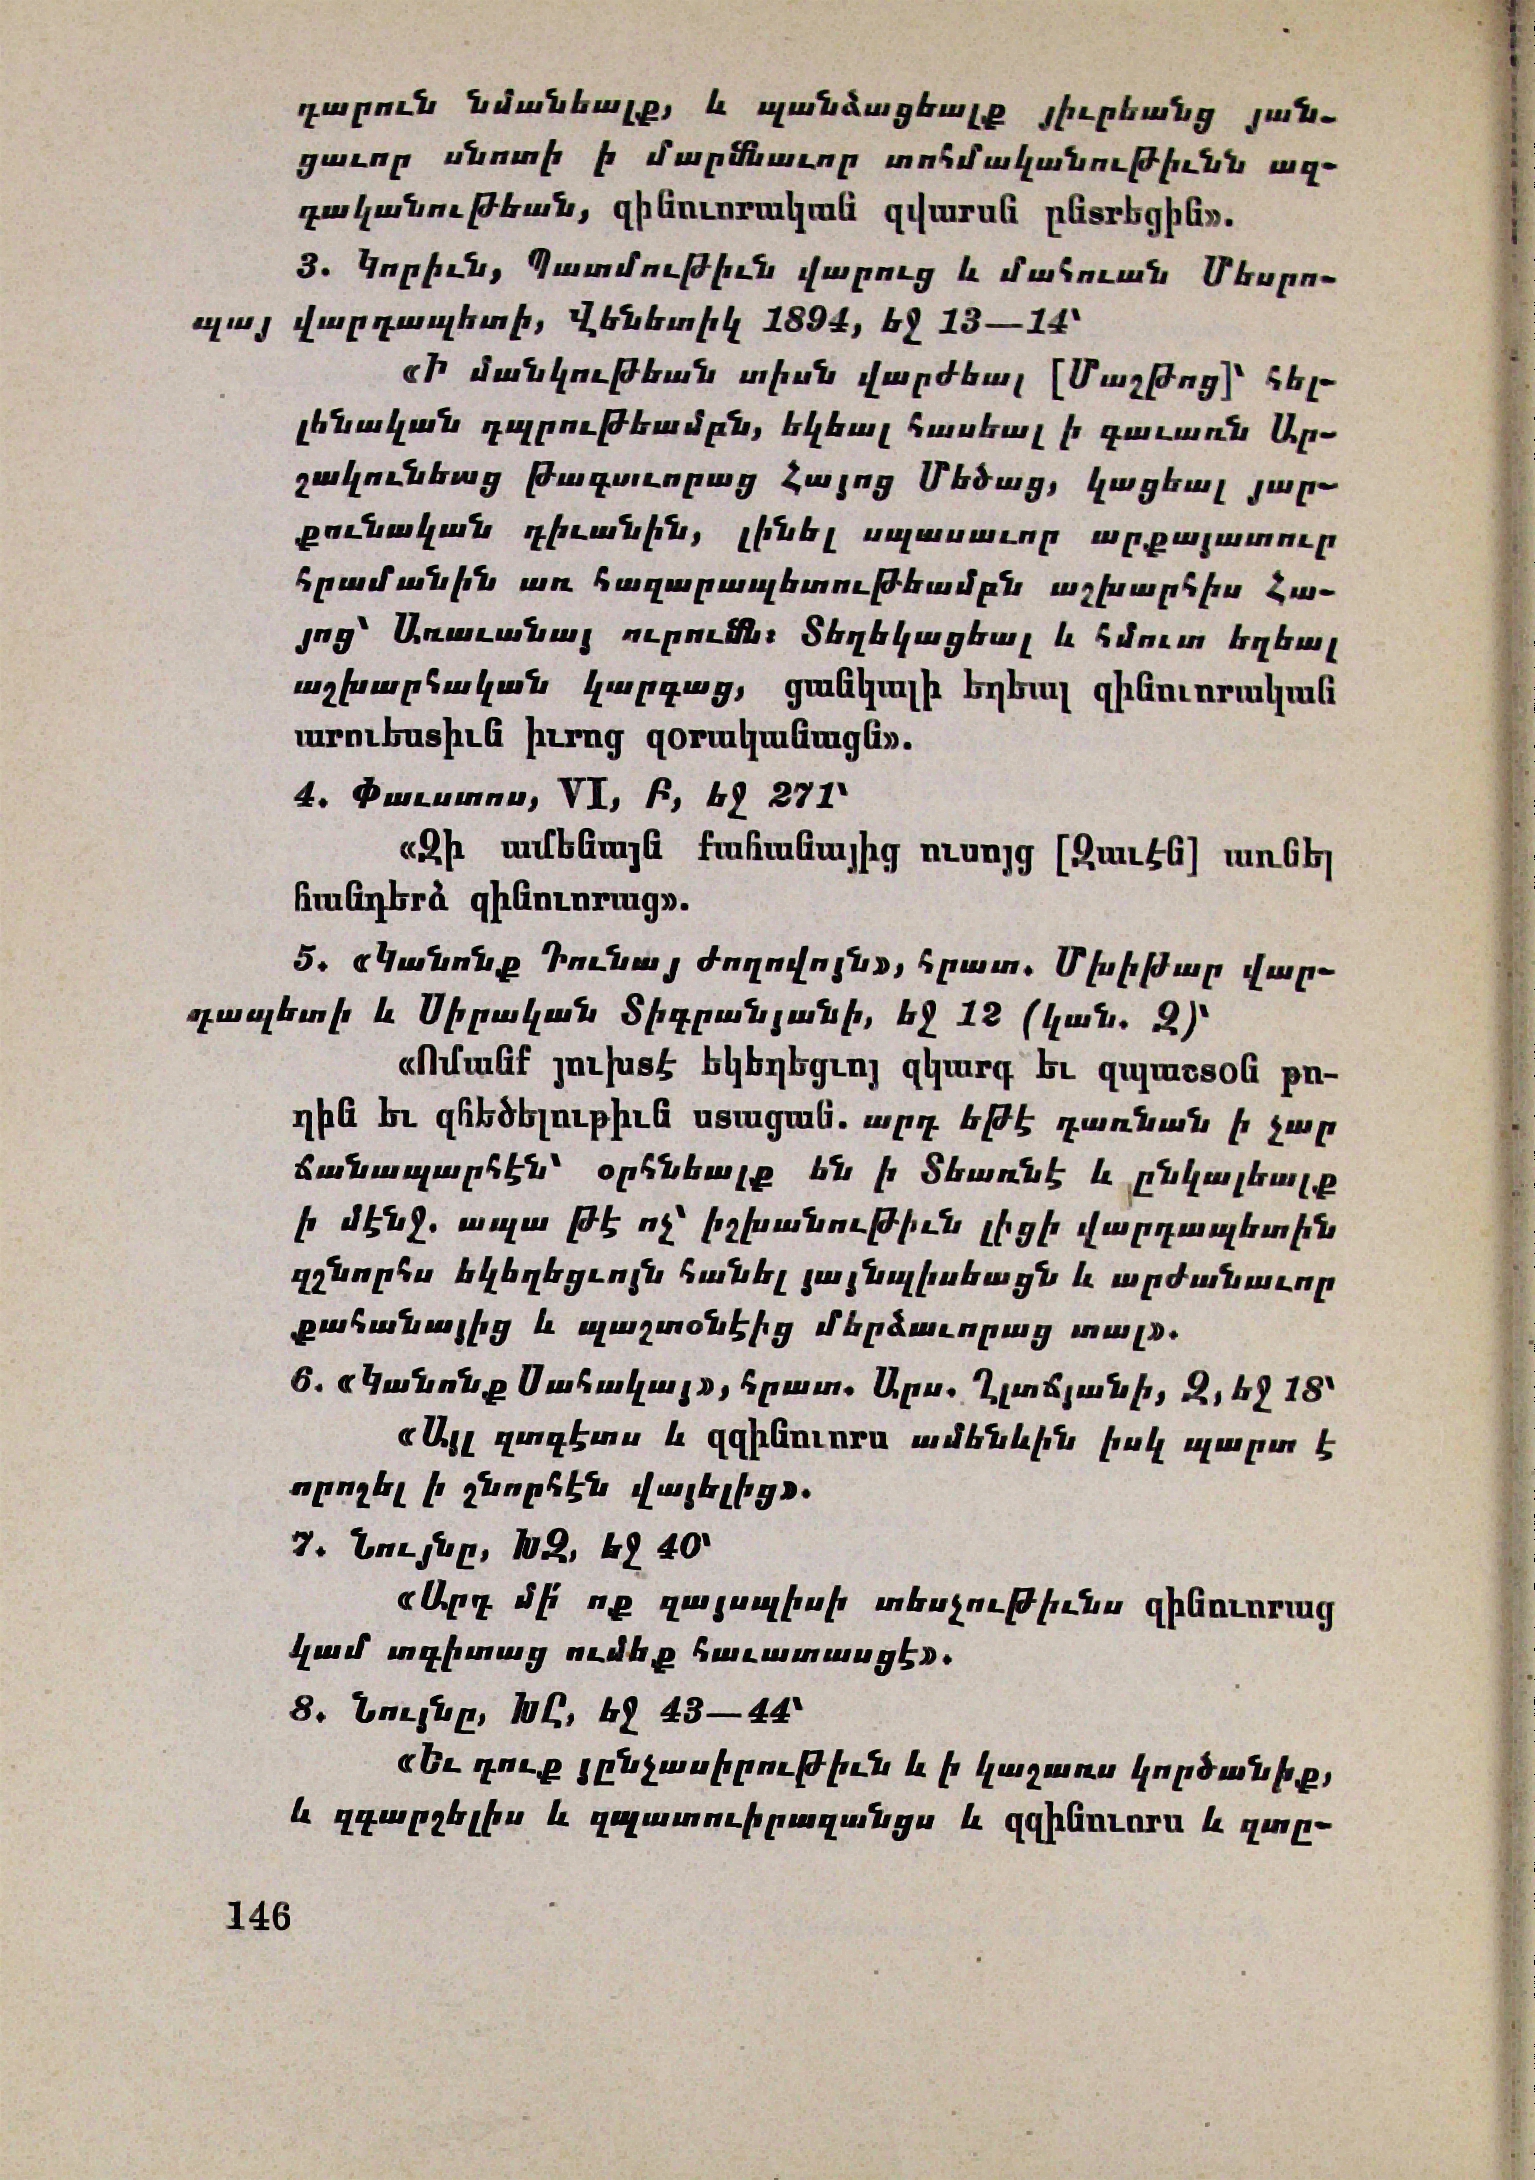 դարուն նմանեալք, և պանձացեալք յիւրեանց յան-
ցաւոր սնոտի ի մարմնաւոր տոհմականութիւնն ազ-
դականութեան, զինուորական զվարսն ընտրեցին».
3. Կորիւն, Պատմութիւն վարուց և մահուան Մեսրո-
պայ վարդապետի, Վենետիկ 1894, եջ 13—14՝
«Ի մանկութեան տիսն վարժեալ [Մաշթոց]՝ հել-
լենական դպրութեամբն, եկեալ հասեալ ի գաւառն Ար-
շակունեաց թագաւորաց Հայոց Մեծաց, կացեալ յար-
քունական դիւանին, լինել սպասաւոր արքայատուր
հրամանին առ հազարապետութեամբն աշխարհիս Հա-
յոց՝ Առաւանայ ուրումն։ Տեղեկացեալ և հմուտ եղեալ
աշխարհական կարգաց, ցանկալի եղեալ զինուորական
արուեստիւն իւրոց զօրականացն».
4. Փաւստոս, VI, Բ, եջ 271՝
«Զի ամենայն քահանայից ուսոյց [Զաւէն] առնել
հանդերձ զինուորաց».
5. «Կանոնք Դունայ ժողովոյն», հրատ. Մխիթար վար-
դապետի և Սիրական Տիգրանյանի, եջ 12 (կան. Զ)՝
«Ոմանք յուխտէ եկեղեցւոյ զկարգ եւ զպաշտօն թո-
ղին եւ զհեծելութիւն ստացան. արդ եթէ դառնան ի չար
ճանապարհէն՝ օրհնեալք են ի Տեառնէ և ընկալեալք
ի մէնջ. ապա թէ ոչ՝ իշխանութիւն լիցի վարդապետին
զշնորհս եկեղեցւոյն հանել յայնպիսեացն և արժանաւոր
քահանայից և պաշտօնէից մերձաւորաց տալ».
6. «Կանոնք Սահակայ», հրատ. Արս. Ղլտճյանի, Զ, եջ 18՝
«Այլ զտգէտս և զզինուորս ամենևին իսկ պարտ է
որոշել ի շնորհէն վայելից».
7. Նույնը, ԽԶ, եջ 40՝
«Արդ մի՛ ոք զայսպիսի տեսչութիւնս զինուորաց
կամ տգիտաց ումեք հաւատասցէ».
8. Նույնը, ԽԸ, եջ 43—44՝
«Եւ դուք յընչասիրութիւն և ի կաշառս կործանիք,
և զգարշելիս և զպատուիրազանցս և զզինուորս և զտը-
146